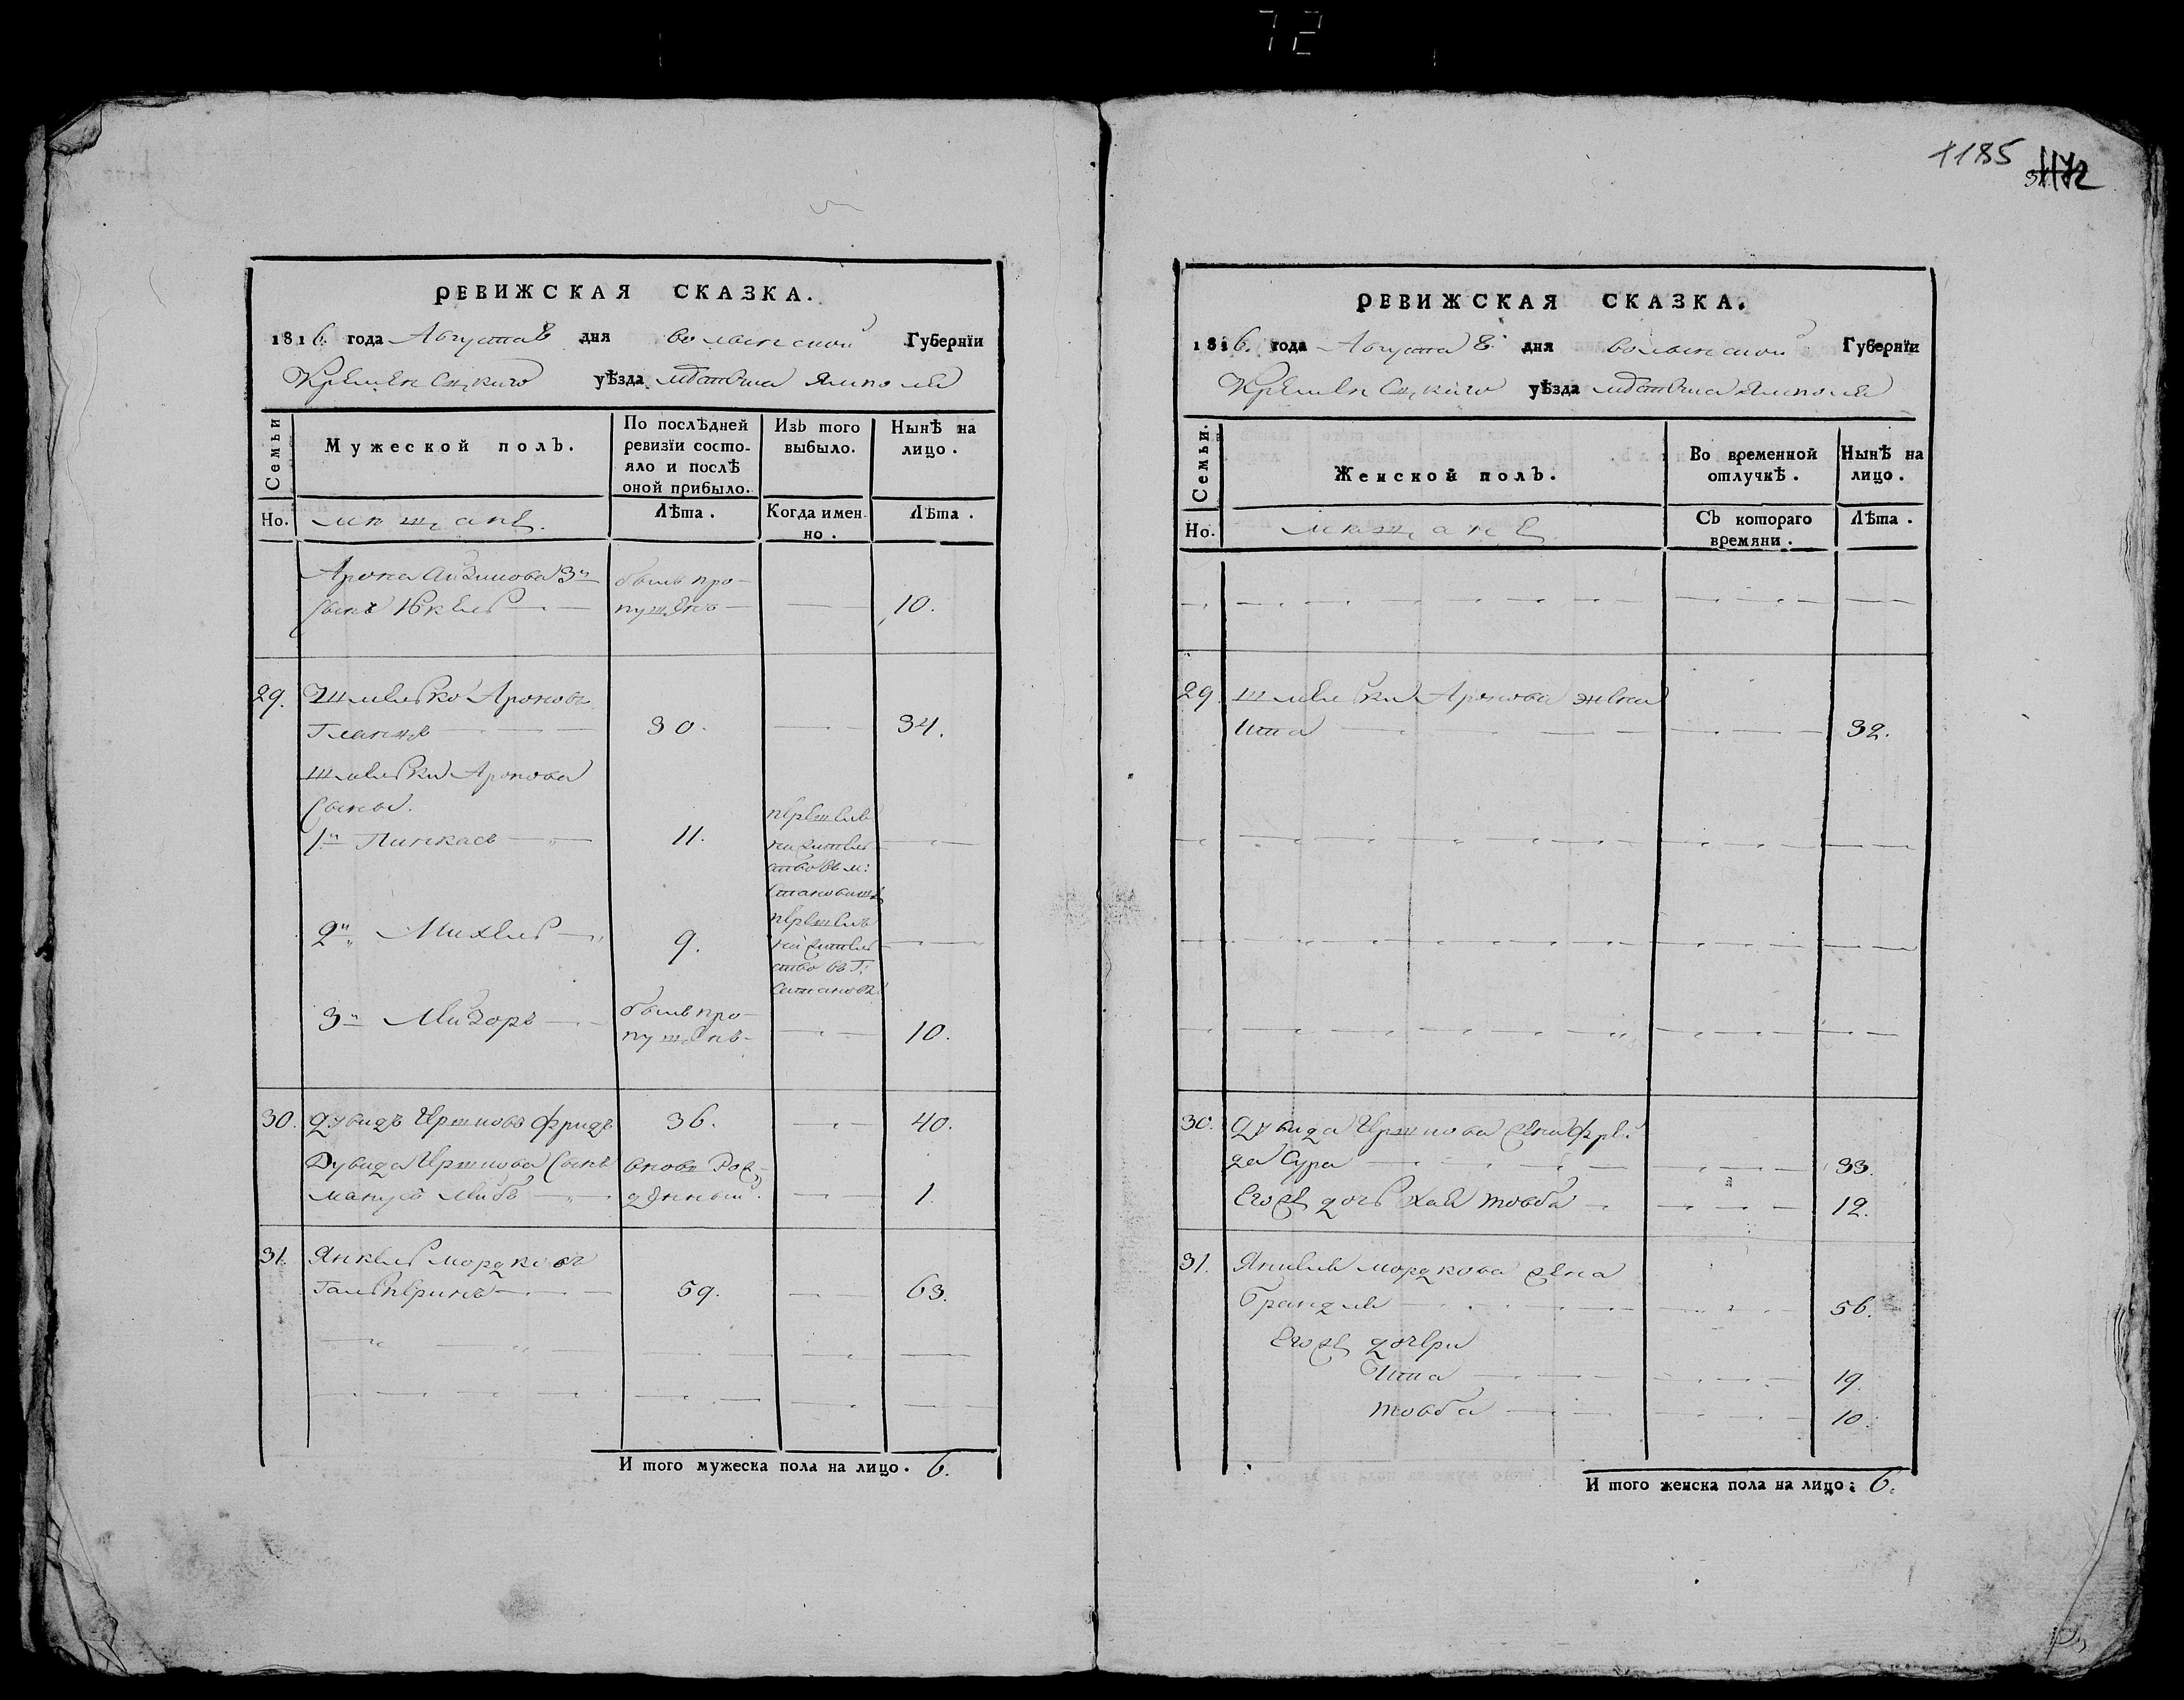 72
1185
РЕВИЖСКАЯ СКАЗКА.
1816. года Августа 8 дня волынской Губернїи
Кременецкаго уѣзда мѣстечка Ямполя
Семьи
Мужеской полъ.
По послѣдней ревизїи состояло и послѣ оной прибыло.
Изъ того выбыло.
Нынѣ на лицо.
Но.
мѣщане.
Лѣта.
Когда именно.
Лѣта.
Арона 3й былъ про-
сынъ Юкель пущенъ 10.
29. Шмелько Ароновъ
Гланцъ 30. 34.
Шмельки Аронова
сыны.
1й Пинкасъ 11. перешелъ
на жител-
ство въ м:
2й Михель 9. перешелъ
на жител-
ство въ г:
3й Мизоръ былъ про-
пущенъ 10.
30. Дувидъ Иршковъ Фридъ 36. 40.
Дувида Иршкова сынъ вновь рож-
Манусъ Лейбъ денный. 1.
31. Янкель Мордковъ
Гальперинъ 59. 63.
И того мужеска пола на лицо. 6.
РЕВИЖСКАЯ СКАЗКА.
1816. года Августа 8. дня волынской Губернїи
Кременецкаго уѣзда мѣстечка Ямполя
Семьи.
Женской полъ.
Во временной отлучкѣ.
Нынѣ на лицо.
Но.
мѣщане
Съ котораго времяни.
Лѣта.
29. Шмельки Аронова жена
Ита 32.
30. Дувида Иршкова жена Фрей
да Сура 33.
Егожъ дочь Хая Товба 12.
31. Янкеля Мордкова жена
Брандля 56.
Егожъ дочери
Ита 19.
Товба 10.
И того женска пола на лицо: 6.